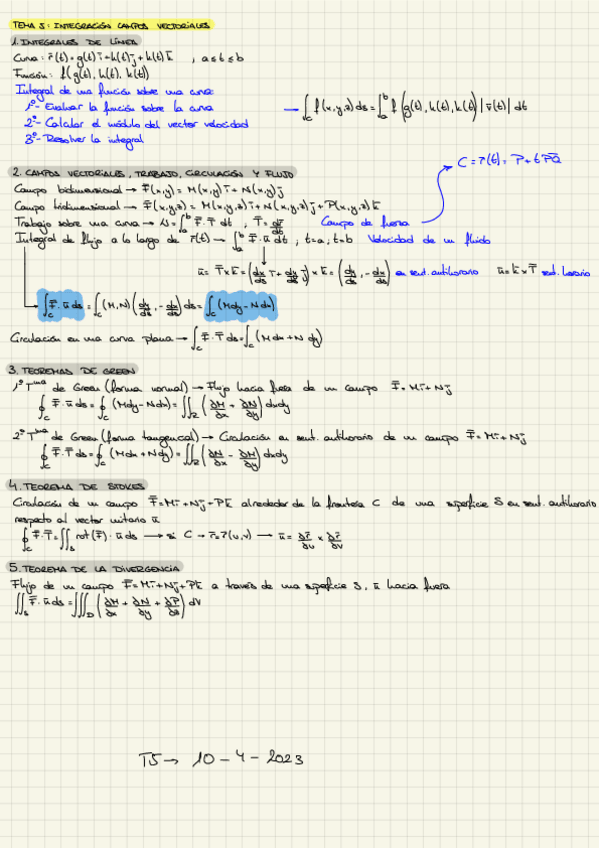 TEMA 5: INTEGRACIÓN CAMPOS VECTORIALES
1. INTEGRALES DE LÍNEA
Curva: r̄(t) = g(t) ī + h(t) j̄ + k(t) k̄ , a ≤ t ≤ b
Función: f(g(t), h(t), k(t))
Integral de una función sobre una curva:
1º- Evaluar la función sobre la curva → ∫_C f(x,y,z) ds = ∫_a^b f(g(t), h(t), k(t)) |v̄(t)| dt
2º- Calcular el módulo del vector velocidad
3º- Resolver la integral
C = r̄(t) = P + t P̄Q̄
2. CAMPOS VECTORIALES, TRABAJO, CIRCULACIÓN Y FLUJO
Campo bidimensional → F̄(x,y) = M(x,y) ī + N(x,y) j̄
Campo tridimensional → F̄(x,y,z) = M(x,y,z) ī + N(x,y,z) j̄ + P(x,y,z) k̄
Trabajo sobre una curva → W = ∫_a^b F̄ · T̄ dt , T̄ = dr̄/dt Campo de fuerza
Integral de flujo a lo largo de r̄(t) → ∫_a^b F̄ · ū dt , t=a, t=b Velocidad de un fluido
ū = T̄ x k̄ = (dx/ds ī + dy/ds j̄) x k̄ = (dy/ds, -dx/ds) en sent. antihorario ū = k̄ x T̄ sent. horario
∫_C F̄ · ū ds = ∫_C (M, N) (dy/ds, -dx/ds) ds = ∫_C (Mdy - Ndx)
Circulación en una curva plana → ∫_C F̄ · T̄ ds = ∫_C (Mdx + N dy)
3. TEOREMAS DE GREEN
1º Tᵐᵃ de Green (forma normal) → Flujo hacia fuera de un campo F̄ = Mī + Nj̄
∮_C F̄ · ū ds = ∮_C (Mdy - Ndx) = ∬_R (∂M/∂x + ∂N/∂y) dxdy
2º Tᵐᵃ de Green (forma tangencial) → Circulación en sent. antihorario de un campo F̄ = Mī + Nj̄
∮_C F̄ · T̄ ds = ∮_C (Mdx + Ndy) = ∬_R (∂N/∂x - ∂M/∂y) dxdy
4. TEOREMA DE STOKES
Circulación de un campo F̄ = Mī + Nj̄ + Pk̄ alrededor de la frontera C de una superficie S en sent. antihorario
respecto al vector unitario ū
∮_C F̄ · T̄ = ∬_S rot(F̄) · ū ds → si C → r̄ = r̄(u,v) → ū = ∂r̄/∂u x ∂r̄/∂v
5. TEOREMA DE LA DIVERGENCIA
Flujo de un campo F̄ = Mī + Nj̄ + Pk̄ a través de una superficie S, ū hacia fuera
∬_S F̄ · ū ds = ∭_D (∂M/∂x + ∂N/∂y + ∂P/∂z) dV
T5 → 10 - 4 - 2023